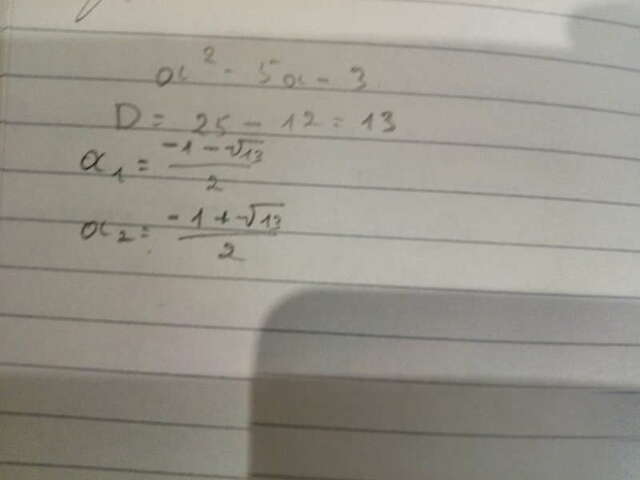 x² - 5x - 3
D = 25 - 12 = 13
x₁ = (-1 - √13)/2
x₂ = (-1 + √13)/2